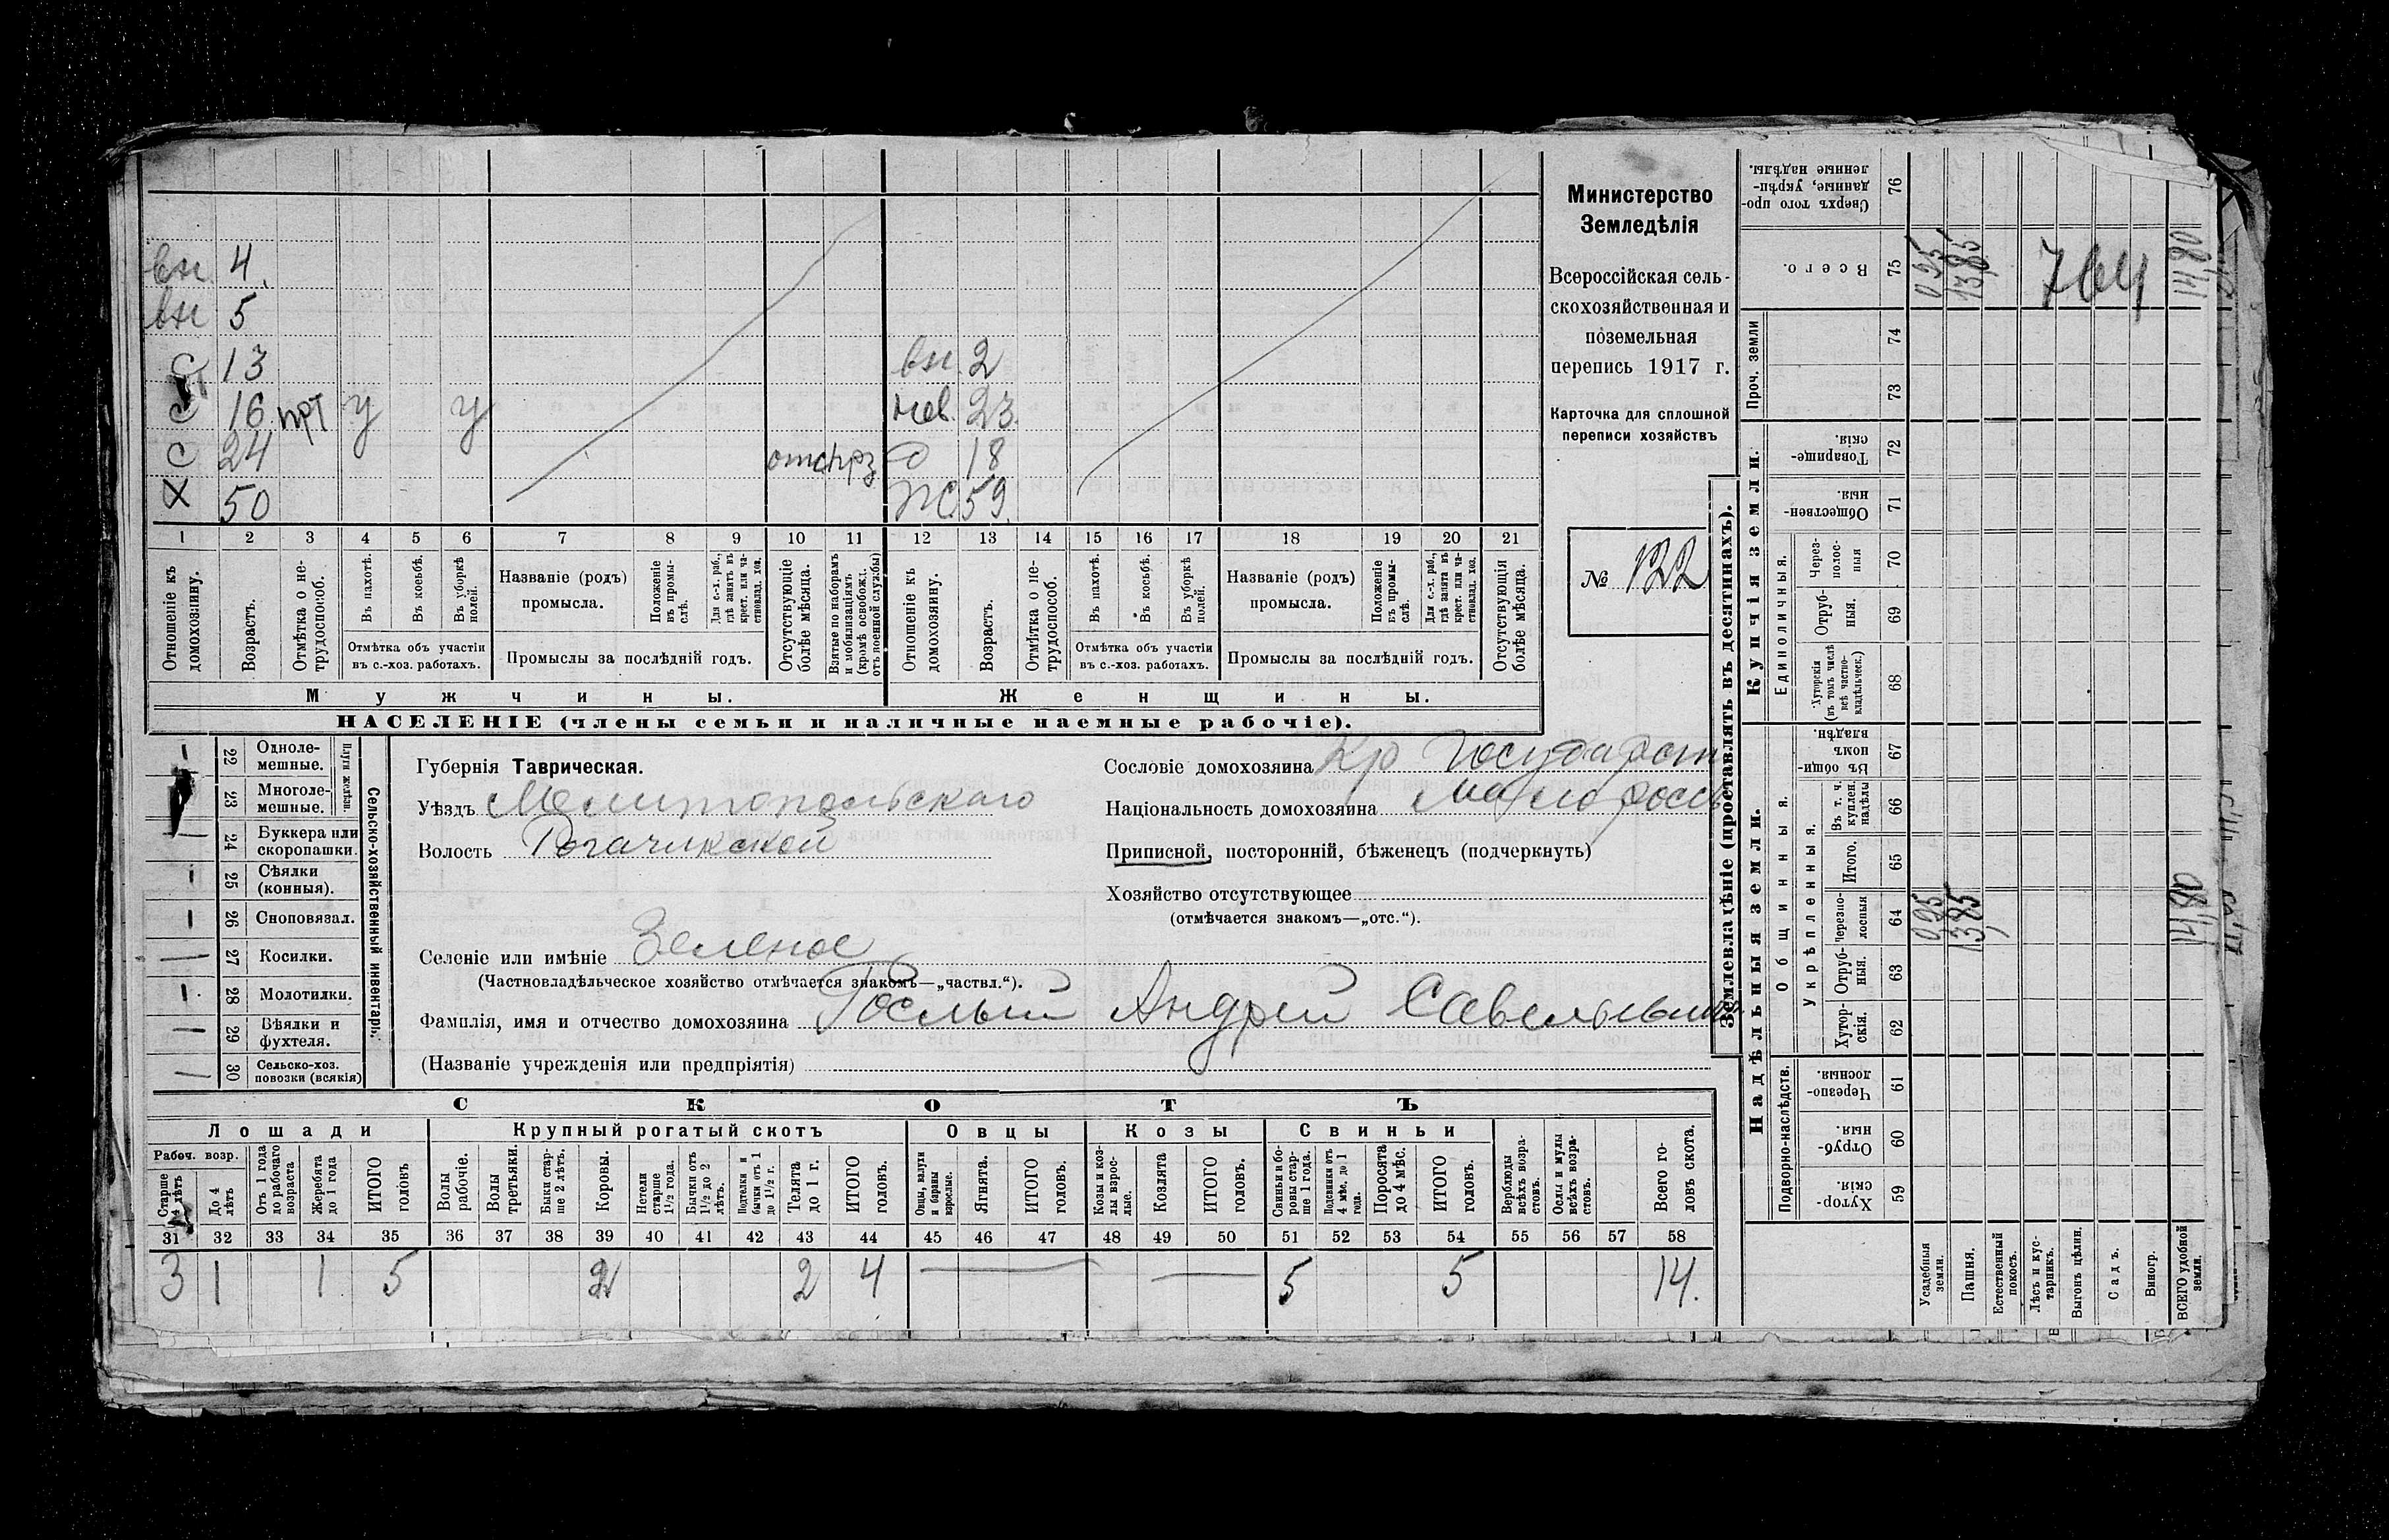 вн 4
вн 5
с 13 вн. 2
с 16 прт у у нев. 23
с 24 отс д 18
Х 50 ж 59
1 2 3 4 5 6 7 8 9 10 11 12 13 14 15 16 17 18 19 20 21
Отношеніе къ домохозяину.
Возрастъ.
Отмѣтка о нетрудоспособ.
Въ пахотѣ.
Въ косьбѣ.
Въ уборкѣ полей.
Отмѣтка объ участіи
въ с.-хоз. работахъ.
Названіе (родъ)
промысла.
Положеніе въ промыслѣ.
Для с.-х. раб., гдѣ занятъ въ крест. или частновлад. хоз.
Промыслы за послѣдній годъ.
Отсутствующіе болѣе мѣсяца.
Взятые по наборамъ и мобилизаціямъ (кромѣ освобожд. отъ военной службы)
Отношеніе къ домохозяину.
Возрастъ.
Отмѣтка о нетрудоспособ.
Въ пахотѣ.
Въ косьбѣ.
Въ уборкѣ полей.
Отмѣтка объ участіи
въ с.-хоз. работахъ.
Названіе (родъ)
промысла.
Положеніе въ промыслѣ.
Для с.-х. раб., гдѣ занята въ крест. или частновлад. хоз.
Промыслы за послѣдній годъ.
Отсутствующія болѣе мѣсяца.
Мужчины. Женщины.
НАСЕЛЕНІЕ (члены семьи и наличные наемные рабочіе).
Министерство
Земледѣлія
Всероссійская сель-
скохозяйственная и
поземельная
перепись 1917 г.
Карточка для сплошной
переписи хозяйствъ
№ 122
Сельско-хозяйственный инвентарь.
Плуги желѣзн.
22 Одноле-
мешные.
23 Многоле-
мешные.
24 Буккера или
скоропашки.
25 Сѣялки
(конныя).
26 Сноповязал.
27 Косилки.
28 Молотилки.
29 Вѣялки и
фухтеля.
30 Сельско-хоз.
повозки (всякія)
Губернія Таврическая.
Уѣздъ Мелитопольскаго
Волость Рогачикской
Селеніе или имѣніе Зеленое
(Частновладѣльческое хозяйство отмѣчается знакомъ—„частвл.“).
Фамилія, имя и отчество домохозяина Андрей Савельевич
(Названіе учрежденія или предпріятія)
Сословіе домохозяина Кр Государст
Національность домохозяина малоросс
Приписной, посторонній, бѣженецъ (подчеркнуть)
Хозяйство отсутствующее
(отмѣчается знакомъ—„отс.“).
СКОТЪ
Лошади Крупный рогатый скотъ Овцы Козы Свиньи
Рабоч. возр.
Старше 4 лѣтъ
До 4 лѣтъ
Отъ 1 года до рабочаго возраста
Жеребята до 1 года
ИТОГО головъ
Волы рабочіе.
Волы третьяки.
Быки старше 2 лѣтъ.
Коровы.
Нетели старше 1½ года.
Бычки отъ 1½ до 2 лѣтъ.
Подтелки и бычки отъ 1 до 1½ г.
Телята до 1 г.
ИТОГО головъ.
Овцы, валухи и бараны взрослые.
Ягнята.
ИТОГО головъ.
Козы и козлы взрослые.
Козлята
ИТОГО головъ.
Свиньи и боровы старше 1 года.
Подсвинки отъ 4 мѣс. до 1 года.
Поросята до 4 мѣс.
ИТОГО головъ.
Верблюды всѣхъ возрастовъ.
Ослы и мулы всѣхъ возрастовъ.
Всего головъ скота.
31 32 33 34 35 36 37 38 39 40 41 42 43 44 45 46 47 48 49 50 51 52 53 54 55 56 57 58
3 1 1 5 2 2 4 5 5 14.
Землевладѣніе (проставлять въ десятинахъ).
Надѣльныя земли. Купчія земли. Проч. земли
Подворно-наслѣдств.
Общинныя.
Укрѣпленныя.
Единоличныя.
Хуторскія. 59
Отрубныя. 60
Черезполосныя. 61
Хуторскія. 62
Отрубныя. 63
Черезполосныя 64
Итого. 65
Въ т. ч. куплен. надѣлы 66
Въ общиномъ владѣн. 67
Хуторскія (въ томъ числѣ всѣ частновладѣльческ.) 68
Отрубныя. 69
Черезполосныя 70
Общественныя. 71
Товарищескія. 72
73
74
Всего. 75
Сверхъ того проданные, укрѣпленные надѣлы. 76
Усадебныя земли. 0,95 0,95
Пашня. 13,85 13,85
Естественный покосъ.
Лѣсъ и кустарникъ.
Выгонъ цѣлин.
Садъ.
Виногр.
ВСЕГО удобной земли. 14,80 14,80
764